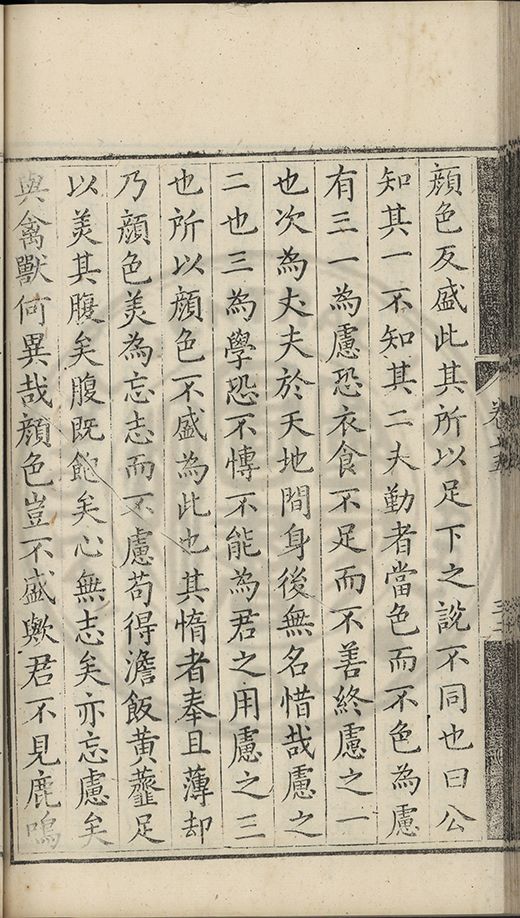 顔色反盛此其所以足下之說不同也曰公
知其一不知其二夫勤者當色而不色為慮
有三一為慮恐衣食不足而不善終慮之一
也次為丈夫於天地間身後無名惜哉慮之
二也三為學恐不慱不能為君之用慮之三
也所以顔色不盛為此也其惰者奉且薄却
乃顔色羙為忘志而不慮苟得澹飯黄虀足
以羙其腹矣腹既飽矣心無志矣亦忘慮矣
與禽獸何異哉顔色豈不盛歟君不見鹿鳴
卷十五